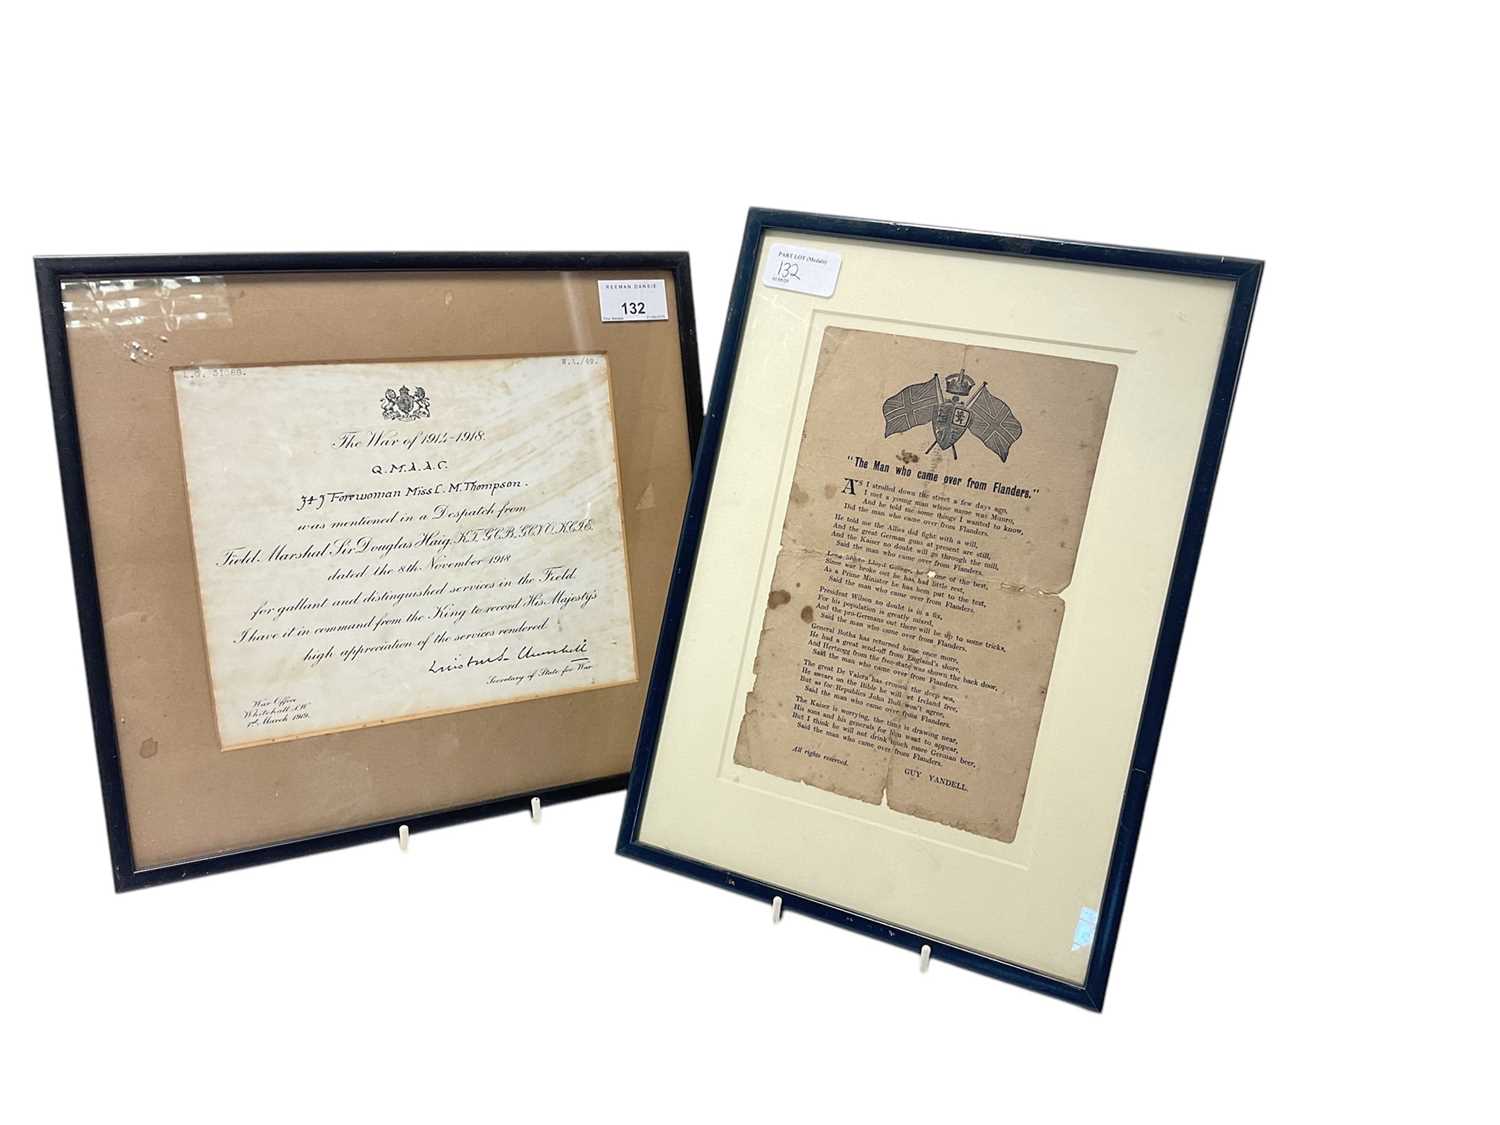 REEMAN DANSIE
132
W.A./49.
The War of 1914-1918.
Q.M.A.A.C.
Forewoman Miss L. M. Thompson.
was mentioned in a Despatch from
Field Marshal Sir Douglas Haig, K.T. G.C.B. G.C.V.O. K.C.I.E.
dated the 8th November 1918
for gallant and distinguished services in the Field.
I have it in command from the King to record His Majesty's
high appreciation of the services rendered.
Winston S. Churchill
Secretary of State for War
War Office
Whitehall S.W.
1st March 1919.
PART LOT (Medals)
132
"The Man who came over from Flanders."
As I strolled down the street a few days ago,
I met a young man whose name was Munro,
And he told me some things I wanted to know,
Did the man who came over from Flanders.
He told me the Allies did fight with a will,
And the great German guns at present are still,
And the Kaiser no doubt will go through the mill,
Said the man who came over from Flanders.
Lloyd George, he's one of the best,
Since war broke out he has had little rest,
As a Prime Minister he has been put to the test,
Said the man who came over from Flanders.
President Wilson no doubt is in a fix,
For his population is greatly mixed,
And the pro-Germans out there will be up to some tricks,
Said the man who came over from Flanders.
General Botha has returned home once more,
He had a great send-off from England's shore,
And Hertzogg from the free-state was shown the back door,
Said the man who came over from Flanders.
The great De Valera has crossed the deep sea,
He swears on the Bible he will set Ireland free,
But as for Republics John Bull won't agree,
Said the man who came over from Flanders.
The Kaiser is worrying, the time is drawing near,
His sons and his generals for you want to appear,
But I think he will not drink much more German beer,
Said the man who came over from Flanders.
All rights reserved.
GUY YANDELL.